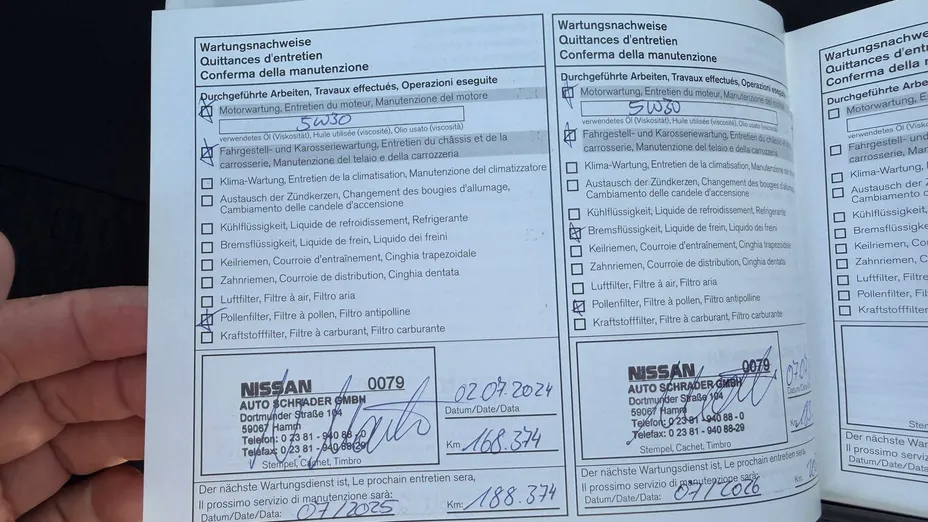 Wartungsnachweise
Quittances d'entretien
Conferma della manutenzione
Durchgeführte Arbeiten, Travaux effectués, Operazioni eseguite
Motorwartung, Entretien du moteur, Manutenzione del motore
5W30
verwendetes Öl (Viskosität), Huile utilisée (viscosité), Olio usato (viscosità)
Fahrgestell- und Karosseriewartung, Entretien du châssis et de la
carrosserie, Manutenzione del telaio e della carrozzeria
Klima-Wartung, Entretien de la climatisation, Manutenzione del climatizzatore
Austausch der Zündkerzen, Changement des bougies d'allumage,
Cambiamento delle candele d'accensione
Kühlflüssigkeit, Liquide de refroidissement, Refrigerante
Bremsflüssigkeit, Liquide de frein, Liquido dei freini
Keilriemen, Courroie d'entraînement, Cinghia trapezoidale
Zahnriemen, Courroie de distribution, Cinghia dentata
Luftfilter, Filtre à air, Filtro aria
Pollenfilter, Filtre à pollen, Filtro antipolline
Kraftstofffilter, Filtre à carburant, Filtro carburante
NISSAN 0079
AUTO SCHRADER GMBH
Dortmunder Straße 104
59067 Hamm
Telefon: 0 23 81 - 940 88-0
Telefax: 0 23 81 - 940 88-29
Stempel, Cachet, Timbro
02.07.2024
Datum/Date/Data
Km 168.374
Der nächste Wartungsdienst ist, Le prochain entretien sera,
Il prossimo servizio di manutenzione sarà:
Datum/Date/Data: 07/2025
Km: 188.374
Wartungsnachweise
Quittances d'entretien
Conferma della manutenzione
Durchgeführte Arbeiten, Travaux effectués, Operazioni eseguite
Motorwartung, Entretien du moteur, Manutenzione del
5W30
verwendetes Öl (Viskosität), Huile utilisée (viscosité), Olio usato (viscosità)
Fahrgestell- und Karosseriewartung, Entretien du châssis et de la
carrosserie, Manutenzione del telaio e della carrozzeria
Klima-Wartung, Entretien de la climatisation, Manutenzione del
Austausch der Zündkerzen, Changement des bougies d'allumage,
Cambiamento delle candele d'accensione
Kühlflüssigkeit, Liquide de refroidissement, Refrigerante
Bremsflüssigkeit, Liquide de frein, Liquido dei freini
Keilriemen, Courroie d'entraînement, Cinghia trapezoidale
Zahnriemen, Courroie de distribution, Cinghia dentata
Luftfilter, Filtre à air, Filtro aria
Pollenfilter, Filtre à pollen, Filtro antipolline
Kraftstofffilter, Filtre à carburant, Filtro carburante
NISSAN 0079
AUTO SCHRADER GMBH
Dortmunder Straße 104
59067 Hamm
Telefon: 0 23 81 - 940 88-0
Telefax: 0 23 81 - 940 88-29
Stempel, Cachet, Timbro
Datum/Date
Km
Der nächste Wartungsdienst ist, Le prochain entretien sera,
Il prossimo servizio di manutenzione sarà:
Datum/Date/Data: 07/2026
Km:
Wartungsnachweise
Quittances d'entretien
Conferma della
Durchgeführte Arbeiten,
Motorwartung,
verwendetes Öl (Viskosität),
Fahrgestell- und
carrosserie,
Klima-Wartung,
Austausch der
Cambiamento
Kühlflüssigkeit,
Bremsflüssigkeit,
Keilriemen,
Zahnriemen,
Luftfilter,
Pollenfilter,
Kraftstofffilter,
Der nächste
Il prossimo
Datum/Date/Data: